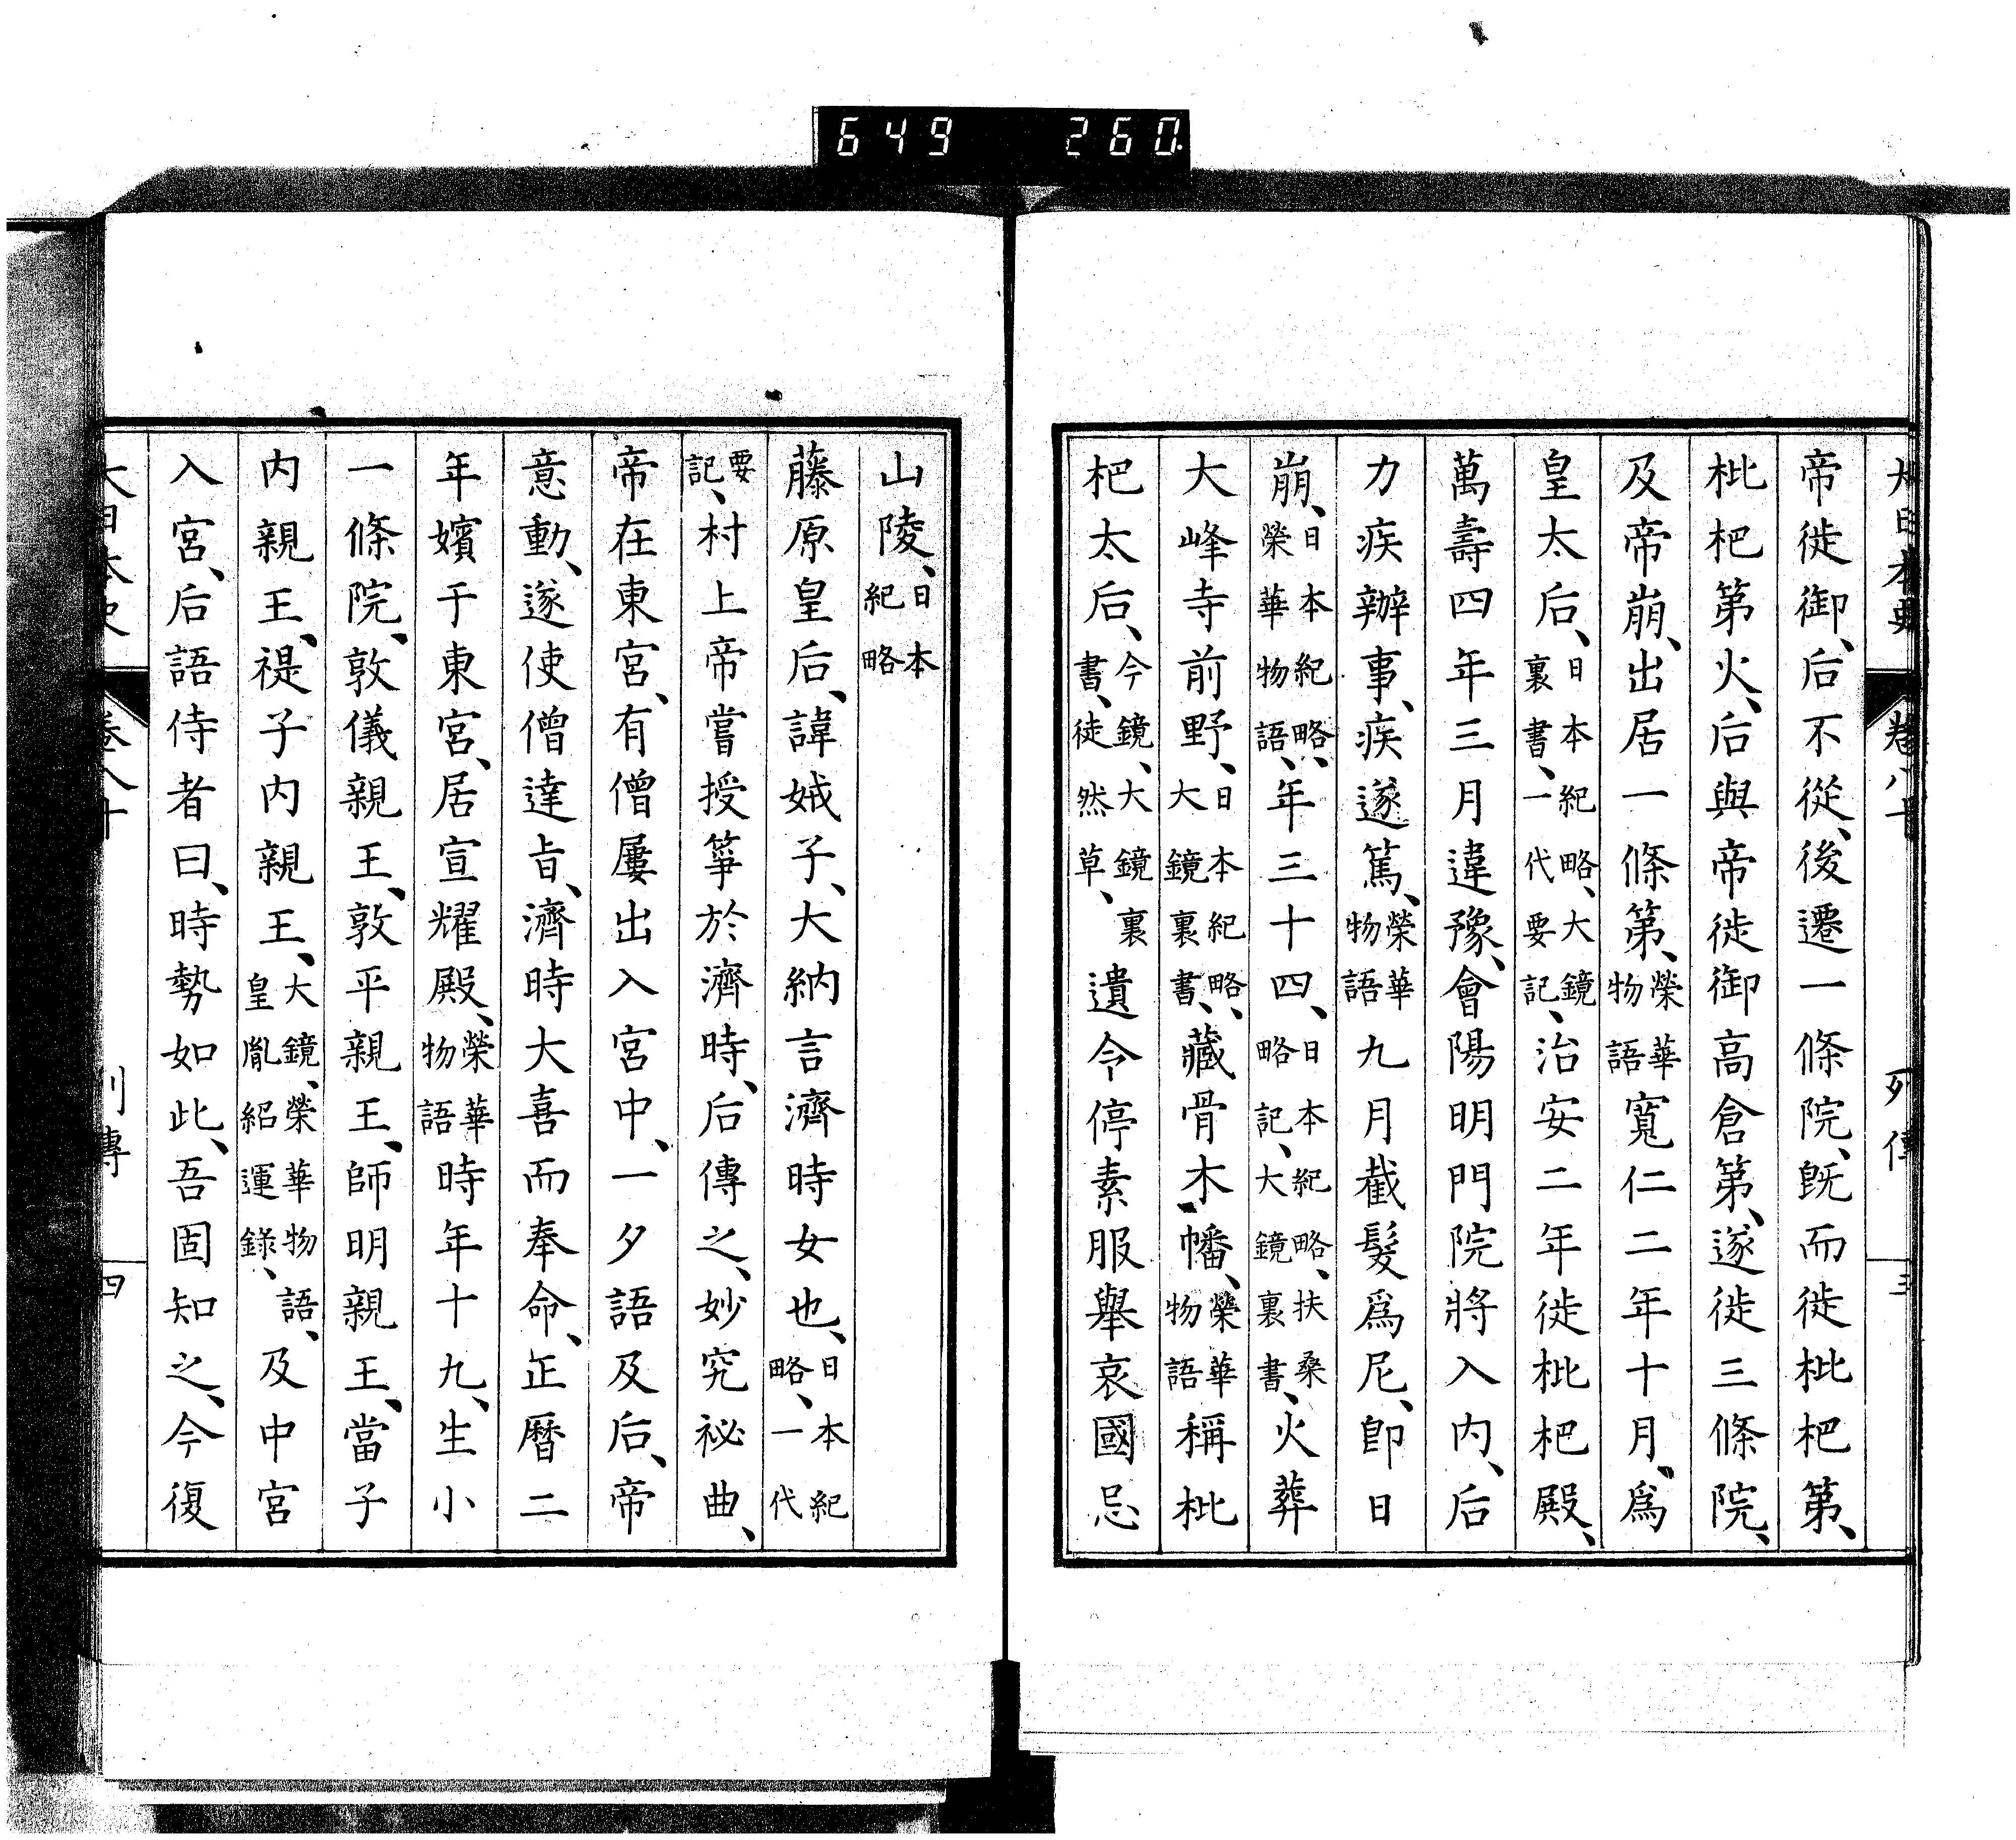 649 260
大日本史 卷八十 列傳 三
帝徙御、后不從、後遷一條院、既而徙枇杷第、
枇杷第火、后與帝徙御高倉第、遂徙三條院、
及帝崩、出居一條第、榮華物語寬仁二年十月、爲
皇太后、日本紀略、大鏡裏書、一代要記、治安二年徙枇杷殿、
萬壽四年三月違豫、會陽明門院將入內、后
力疾辦事、疾遂篤、榮華物語九月截髮爲尼、卽日
崩、日本紀略、榮華物語、年三十四、日本紀略、扶桑略記、大鏡裏書、火葬
大峰寺前野、日本紀略、大鏡裏書、藏骨木幡、榮華物語稱枇
杷太后、今鏡、大鏡裏書、徒然草、遺令停素服舉哀國忌
山陵、日本紀略
藤原皇后、諱娍子、大納言濟時女也、日本紀略、一代
要記、村上帝嘗授箏於濟時、后傳之、妙究祕曲、
帝在東宮、有僧屢出入宮中、一夕語及后、帝
意動、遂使僧達旨、濟時大喜而奉命、正曆二
年嬪于東宮、居宣耀殿、榮華物語時年十九、生小
一條院、敦儀親王、敦平親王、師明親王、當子
內親王、禔子內親王、大鏡、榮華物語、皇胤紹運錄、及中宮
入宮、后語侍者曰、時勢如此、吾固知之、今復
大日本史 卷八十 列傳 四